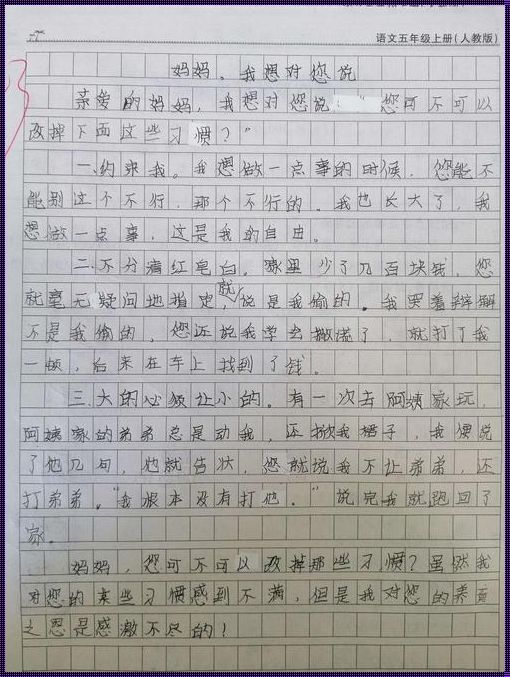 语文五年级上册(人教版)
妈妈，我想对您说
亲爱的妈妈，我想对您说："您可不可以
改掉下面这些习惯？"
一、约束我。我想做一点事的时候，您能不
能别这个不行，那个不行的。我也长大了，我
想做一点事，这是我的自由。
二、不分青红皂白。家里少了几百块钱，您
就毫无疑问地指定，就说是我偷的。我哭着辩解
不是我偷的，您还说我学会撒谎了，就打了我
一顿，后来在车上找到了钱。
三、大的必须让小的。有一次去阿姨家玩，
阿姨家的弟弟总是动我，还掀我裙子，我便说
了他几句，他就告状，您就说我不让弟弟，还
打弟弟。"我根本没有打他。"说完我就跑回了
家。
妈妈，您可不可以改掉那些习惯？虽然我
对您的某些习惯感到不满，但是我对您的养育
之恩是感激不尽的！